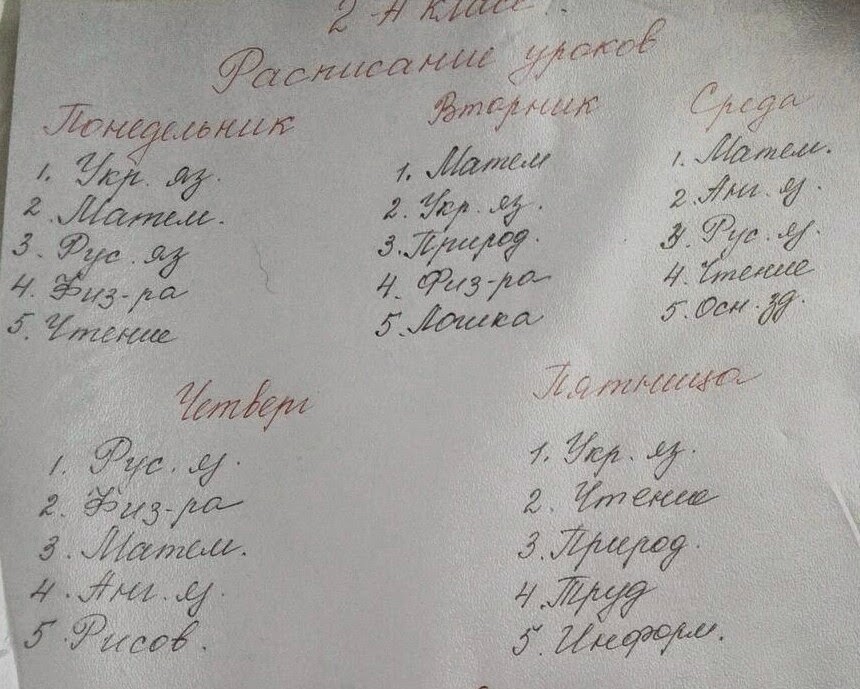 2-А класс.
Расписание уроков
Понедельник
1. Укр. яз.
2. Матем.
3. Рус. яз
4. Физ-ра
5. Чтение
Вторник
1. Матем
2. Укр. яз.
3. Природ.
4. Физ-ра
5. Логика
Среда
1. Матем.
2. Анг. яз.
3. Рус. яз.
4. Чтение
5. Осн. зд.
Четверг
1. Рус. яз.
2. Физ-ра
3. Матем.
4. Анг. яз.
5. Рисов.
Пятница
1. Укр. яз.
2. Чтение
3. Природ.
4. Труд
5. Информ.